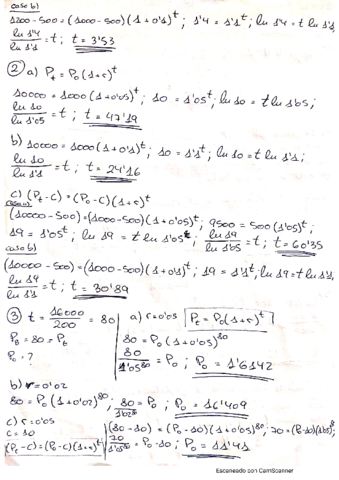 caso b)
1200-500=(1000-500)(1+0'1)^t; 1'4=1'1^t; ln 1'4 = t ln 1'1
ln 1'4 / ln 1'1 = t; t = 3'53
② a) P_t = P_0(1+r)^t
10000 = 1000(1+0'05)^t; 10 = 1'05^t; ln 10 = t ln 1'05;
ln 10 / ln 1'05 = t; t = 47'19
b) 10000 = 1000(1+0'1)^t; 10 = 1'1^t; ln 10 = t ln 1'1;
ln 10 / ln 1'1 = t; t = 24'16
c) (P_t-C) = (P_0-C)(1+r)^t
caso a)
(10000-500)=(1000-500)(1+0'05)^t; 9500 = 500(1'05)^t;
19 = 1'05^t; ln 19 = t ln 1'05; ln 19 / ln 1'05 = t; t = 60'35
caso b)
(10000-500)=(1000-500)(1+0'1)^t; 19 = 1'1^t; ln 19 = t ln 1'1
ln 19 / ln 1'1 = t; t = 30'89
③ t = 16000 / 200 = 80
P_t = 80 = P_t
P_0 = ?
a) r=0'05 P_t = P_0(1+r)^t
80 = P_0(1+0'05)^80
80 / 1'05^80 = P_0; P_0 = 1'6142
b) r=0'02
80 = P_0(1+0'02)^80; 80 / 1'02^80 = P_0; P_0 = 16'409
c) r=0'05
C = 10
(P_t-C) = (P_0-C)(1+r)^t
(80-10) = (P_0-10)(1+0'05)^80; 70 = (P_0-10)(1'05)^80
70 / 1'05^80 = P_0-10; P_0 = 11'41
Escaneado con CamScanner